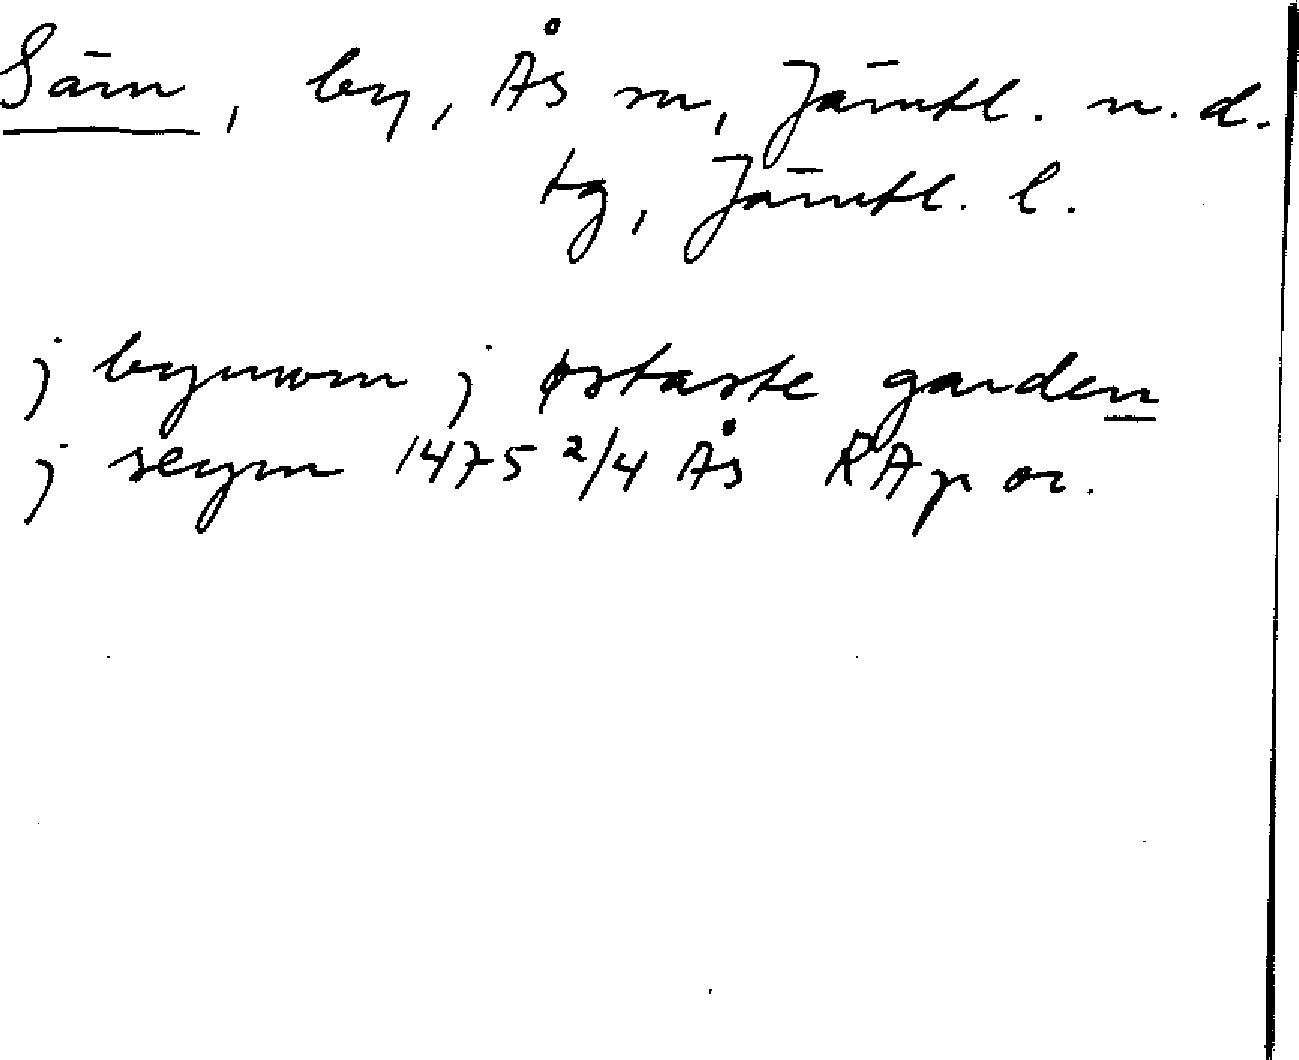 Säm, by, Ås sn, Jämtl. n. d.
tg, Jämtl. l.
j bynwm j østaste garden
j seym 1475 2/4 Ås RAp or.